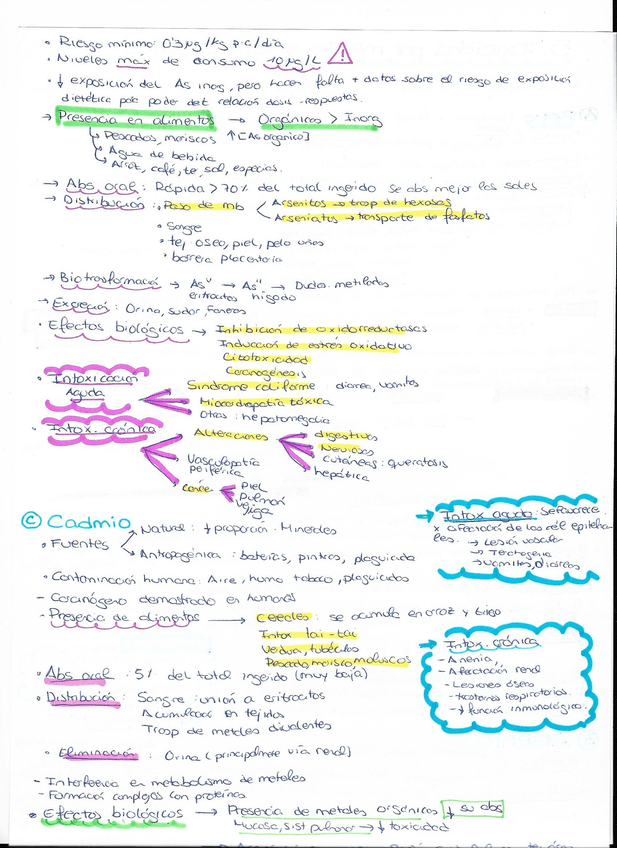 • Riesgo mínimo: 0'3 µg/kg p.c/día
• Niveles máx de consumo 10 µg/L
• ↓ exposición del As inog, pero hacen falta + datos sobre el riesgo de exposición
dietética para poder det relación dosis-respuestas.
→ Presencia en alimentos → Orgánicos > Inorg
↳ Pescados, mariscos ↑[As orgánico]
↳ Agua de bebida
↳ Arroz, café, te, sal, especias.
→ Abs. oral: Rápida > 70% del total ingerido se abs mejor las sales
→ Distribución: Paso de mb
Arsenitos → trasp de hexosas
Arseniatos → transporte de fosfatos
• Sangre
• tej. oseo, piel, pelo uñas
• barrera placentaria
→ Biotrasformación → Asⱽ → As‴ → metilados
eritrocitos hígado
→ Excreción: Orina, sudor, faneras
• Efectos biológicos → Inhibición de oxidorreductasas
Inducción de estrés oxidativo
Citotoxicidad
Carcinogénesis
• Intoxicación
Aguda
Síndrome coleriforme: diarrea, vómitos
Miocardiopatía tóxica
Otras: hepatomegalia
• Intox. crónica
Alteraciones
digestivas
Nerviosas
cutáneas: queratosis
hepática
Vasculopatía
periférica
cáncer
Piel
Pulmón
vejiga
© Cadmio
• Fuentes
Natural: ↓ proporción. Minerales
Antropogénica: baterías, pinturas, plaguicida
• Contaminación humana: Aire, humo tabaco, plaguicidas
- Carcinógeno demostrado en humanos
- Presencia de alimentos → Cereales: se acumula en arroz y trigo
Intox Itai-tai
Verdura, tubérculos
Pescado, marisco, moluscos
• Abs oral: 5% del total ingerido (muy baja)
• Distribución: Sangre: unión a eritrocitos
Acumulación en tejidos
Trasp de metales divalentes
• Eliminación: Orina (principalmente vía renal)
- Interferencia en metabolismo de metales
- Formación complejos con proteínas.
• Efectos biológicos → Presencia de metales orgánicos ↓ su abs
Mucosa, sist pulmonar → ↓ toxicidad
→ Intox aguda: Se favorece
x afectación de las cél epitelia-
les.
→ Lesión vascular
→ Teratogenia
→ Vómitos, diarreas
→ Intox. crónica
- Anemia,
- Afectación renal
- Lesiones óseas
- trastornos respiratorios.
- ↓ función inmunológica.